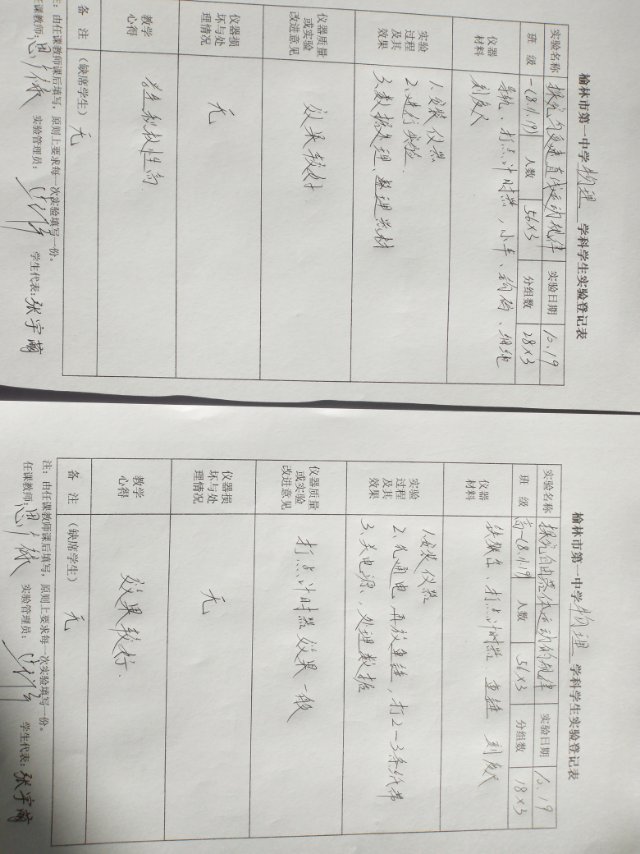 榆林市第一中学物理学科学生实验登记表
实验名称 探究匀变速直线运动的规律 实验日期 10.19
班级 一(8.11.19) 人数 56×3 分组数 28×3
仪器材料 导轨、打点计时器，小车、钩码、细绳
刻度尺
实验过程及其效果
1.安装仪器
2.进行实验
3.数据处理、整理器材
仪器质量或实验改进意见 效果较好
仪器损坏与处理情况 无
教学心得 学生积极性高
备注 (缺席学生) 无
注：由任课教师课后填写，原则上要求每一次实验填写一份。
任课教师: 实验管理员: 学生代表: 张宇
榆林市第一中学物理学科学生实验登记表
实验名称 探究自由落体运动的规律 实验日期 10.19
班级 高一(8.11.19) 人数 56×3 分组数 18×3
仪器材料 铁架台、打点计时器 重锤 刻度尺
实验过程及其效果
1.安装仪器
2.先通电，再放重锤，打2-3条纸带
3.关电源、处理数据
仪器质量或实验改进意见 打点计时器效果一般
仪器损坏与处理情况 无
教学心得 效果较好.
备注 (缺席学生) 无
注：由任课教师课后填写，原则上要求每一次实验填写一份。
任课教师: 实验管理员: 学生代表: 张宇